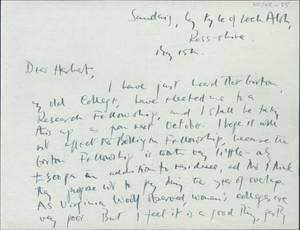 Sandaig, by Kyle of Loch Alsh,
Ross-shire.
May 15th.
Dear Herbert,
I have just heard that Girton,
my old College, have elected me to a
Research Fellowship, and I shall be taking
this up a year next October. I hope it will
not affect the Bollingen Fellowship, because the
Girton Fellowship is worth very little - as
£300 pa in addition to residence, and this I think
they require not to pay during the year of overlap.
As Virginia Woolf observed women's colleges are
very poor. But I feel it is a good thing, partly